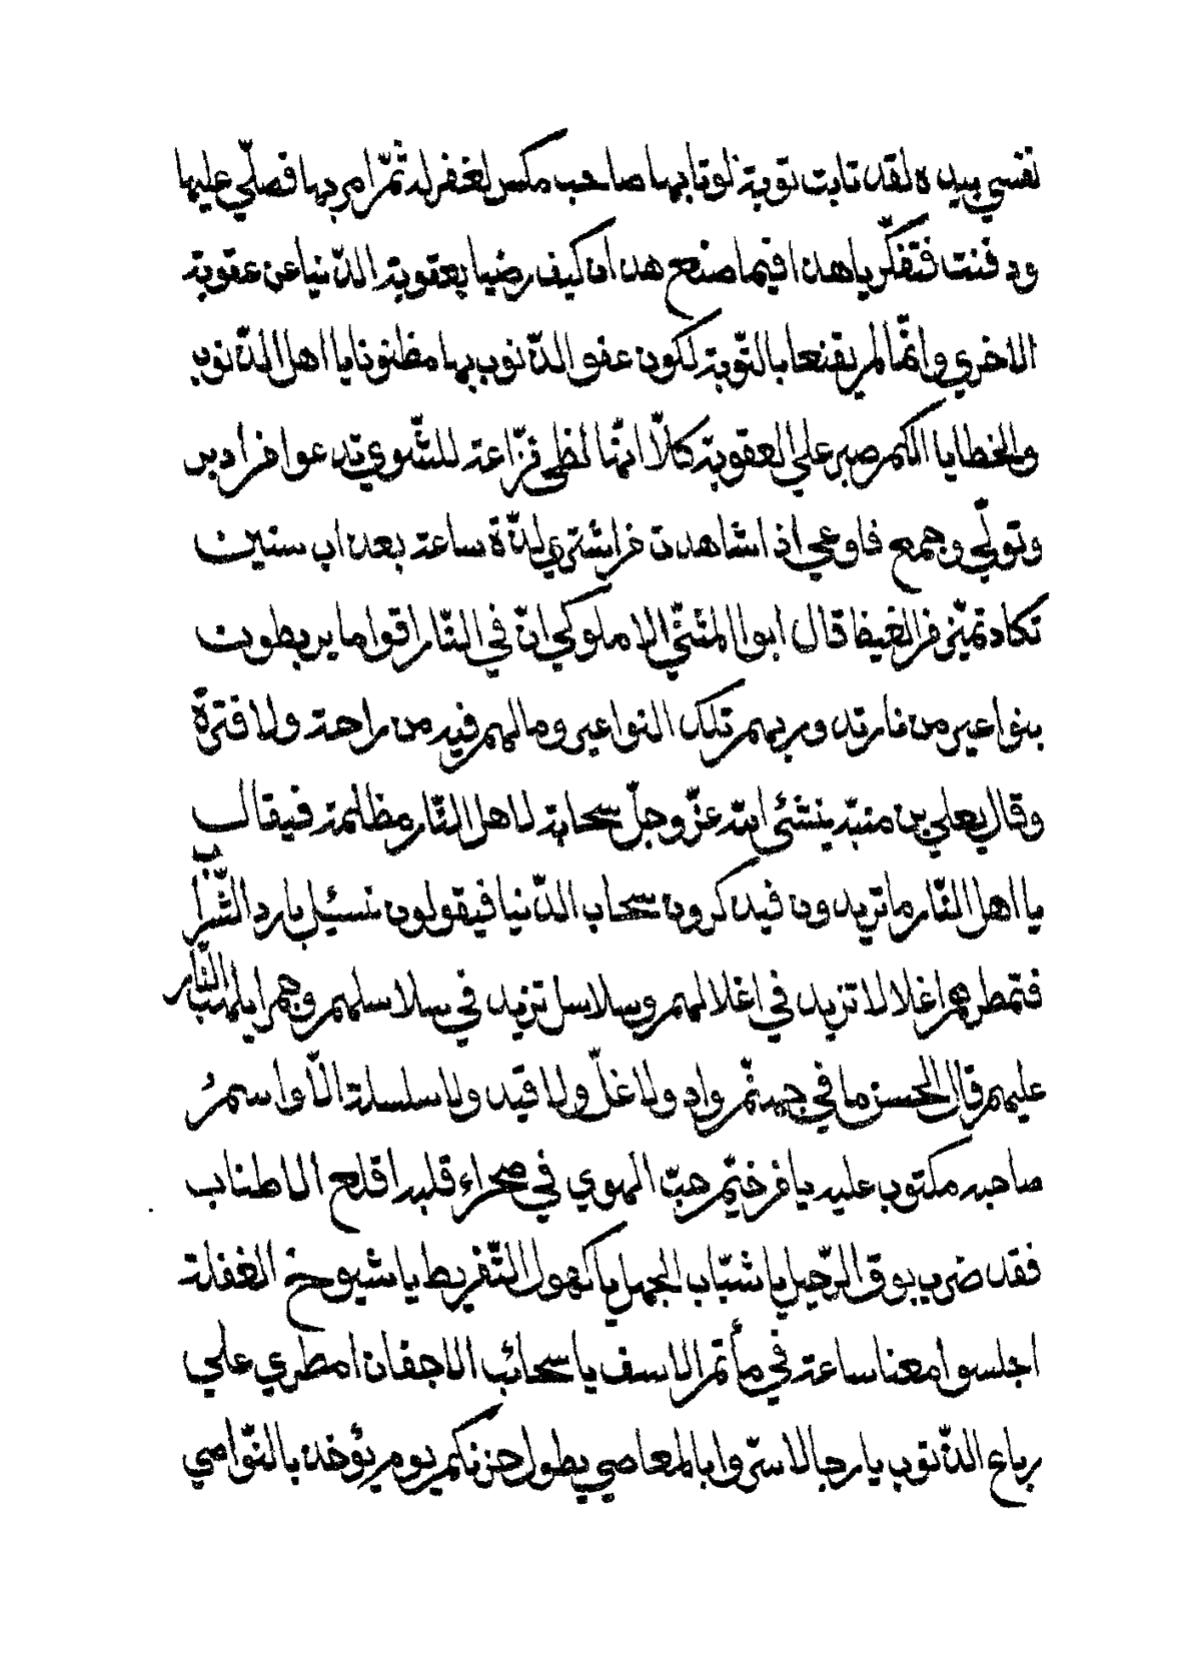 نفسي بيده لقد تابت توبة لوتابها صاحب مكس لغفر له ثمّ امر بها فصلّي عليها
ودفنت فتفكّر ياهذا فيما صنع هذان كيف رضيا بعقوبة الدّنيا عن عقوبة
الاخري وانمّا لم يقنعا بالتّوبة لكون عفو الذّنوب بها مظنونا يا اهل الذّنوب
والخطايا الكم صبر علي العقوبة كلّا انهّا لظي نزّاعة للشّوي تدعوا من ادبر
وتولّي وجمع فاوعي اذا شاهدت من اشتري لذّة ساعة بعذاب سنين
تكاد تميّز من الغيظ قال ابوا المثنيّ الاملوكي انّ في النّار اقواما يربطون
بنواعير من نار تدور بهم تلك النواعير وما لهم فيه من راحة ولا فترة
وقال يعلي بن منبّه ينشئ الله عزّ وجلّ سحابة لاهل النّار مظلمة فيقال
يا اهل النّار ما تريدون فيذكرون سحاب الدّنيا فيقولون نسئل بارد الشّراب
فتمطرهم اغلالا تزيد في اغلالهم وسلاسل تزيد في سلاسلهم وجمرا يلهب النّار
عليهم قال الحسن ما في جهنّم واد ولا غلّ ولا قيد ولا سلسلة الّا واسمُ
صاحبه مكتوب عليه يا من خيّم حبّ الهوي في صحراء قلبه اقلع الاطناب
فقد ضرب بوق الرّحيل يا شبّاب الجهل يا كهول التّفريط يا شيوخ الغفلة
اجلسوا معنا ساعة في مأتم الاسف يا سحائب الاجفان امطري علي
رباع الذّنوب يا رجالا سرّوا بالمعاصي يطول حزنكم يوم يؤخذ بالنّواصي